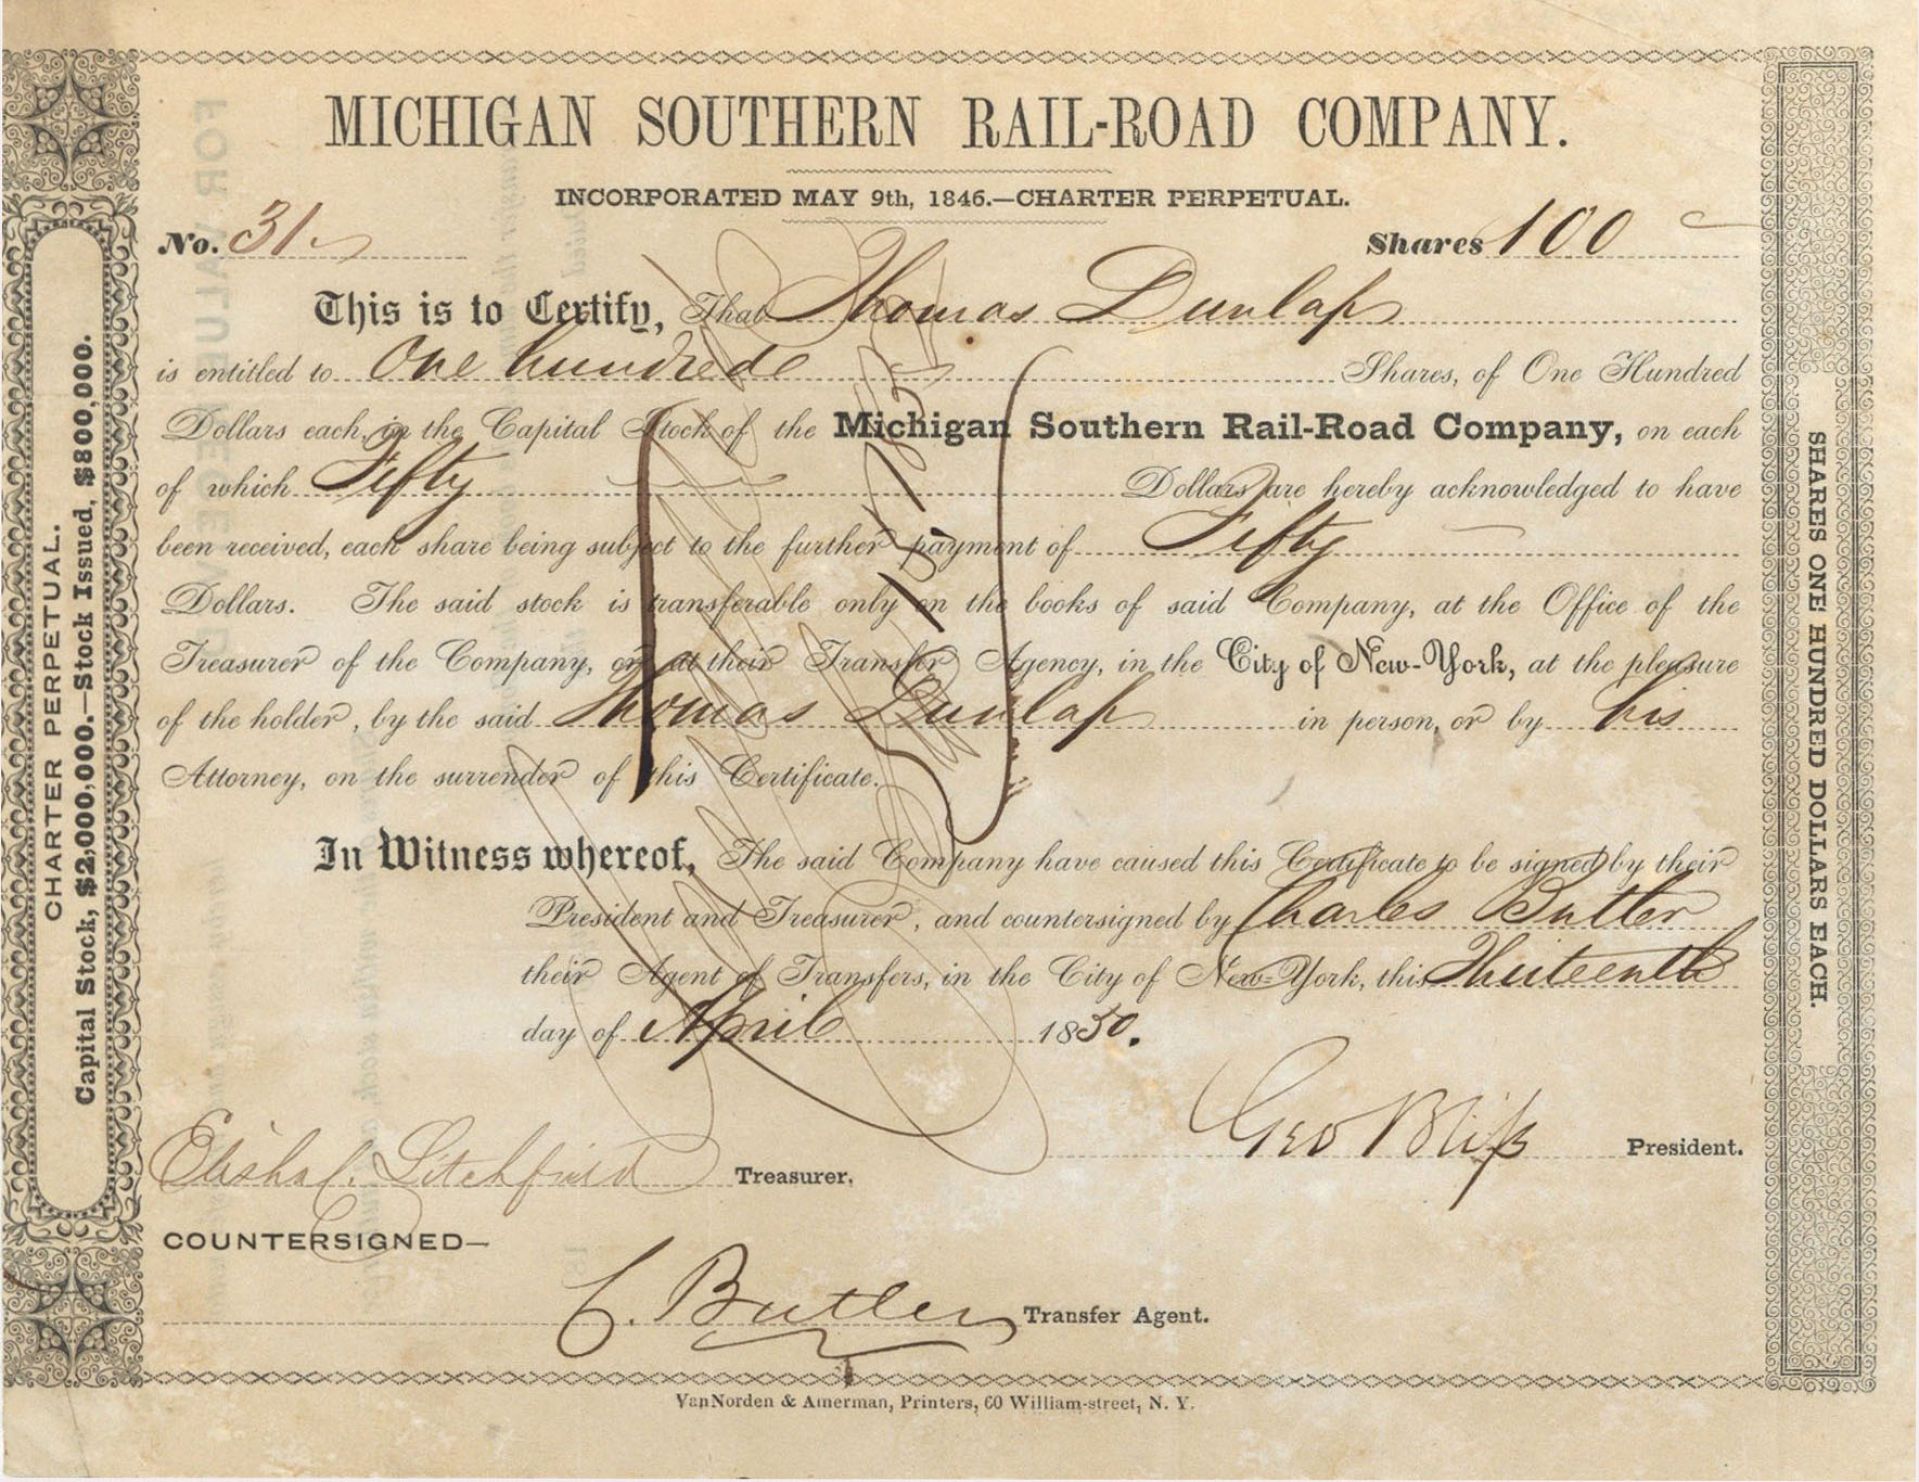 MICHIGAN SOUTHERN RAIL-ROAD COMPANY.
INCORPORATED MAY 9th, 1846.—CHARTER PERPETUAL.
No. 31 Shares 100
This is to Certify, That Thomas Dunlap
is entitled to One hundred Shares, of One Hundred
Dollars each, in the Capital Stock of the Michigan Southern Rail-Road Company, on each
of which Fifty Dollars are hereby acknowledged to have
been received, each share being subject to the further payment of Fifty
Dollars. The said stock is transferable only on the books of said Company, at the Office of the
Treasurer of the Company, or at their Transfer Agency, in the City of New-York, at the pleasure
of the holder, by the said Thomas Dunlap in person, or by his
Attorney, on the surrender of this Certificate.
In Witness whereof, The said Company have caused this Certificate to be signed by their
President and Treasurer, and countersigned by Charles Butler
their Agent of Transfers, in the City of New-York, this Thirteenth
day of April 1850.
Geo Bliss President.
Elisha C. Litchfield Treasurer.
COUNTERSIGNED—
C. Butler Transfer Agent.
VanNorden & Amerman, Printers, 60 William-street, N. Y.
CHARTER PERPETUAL.
Capital Stock, $2,000,000.—Stock Issued, $800,000.
SHARES ONE HUNDRED DOLLARS EACH.